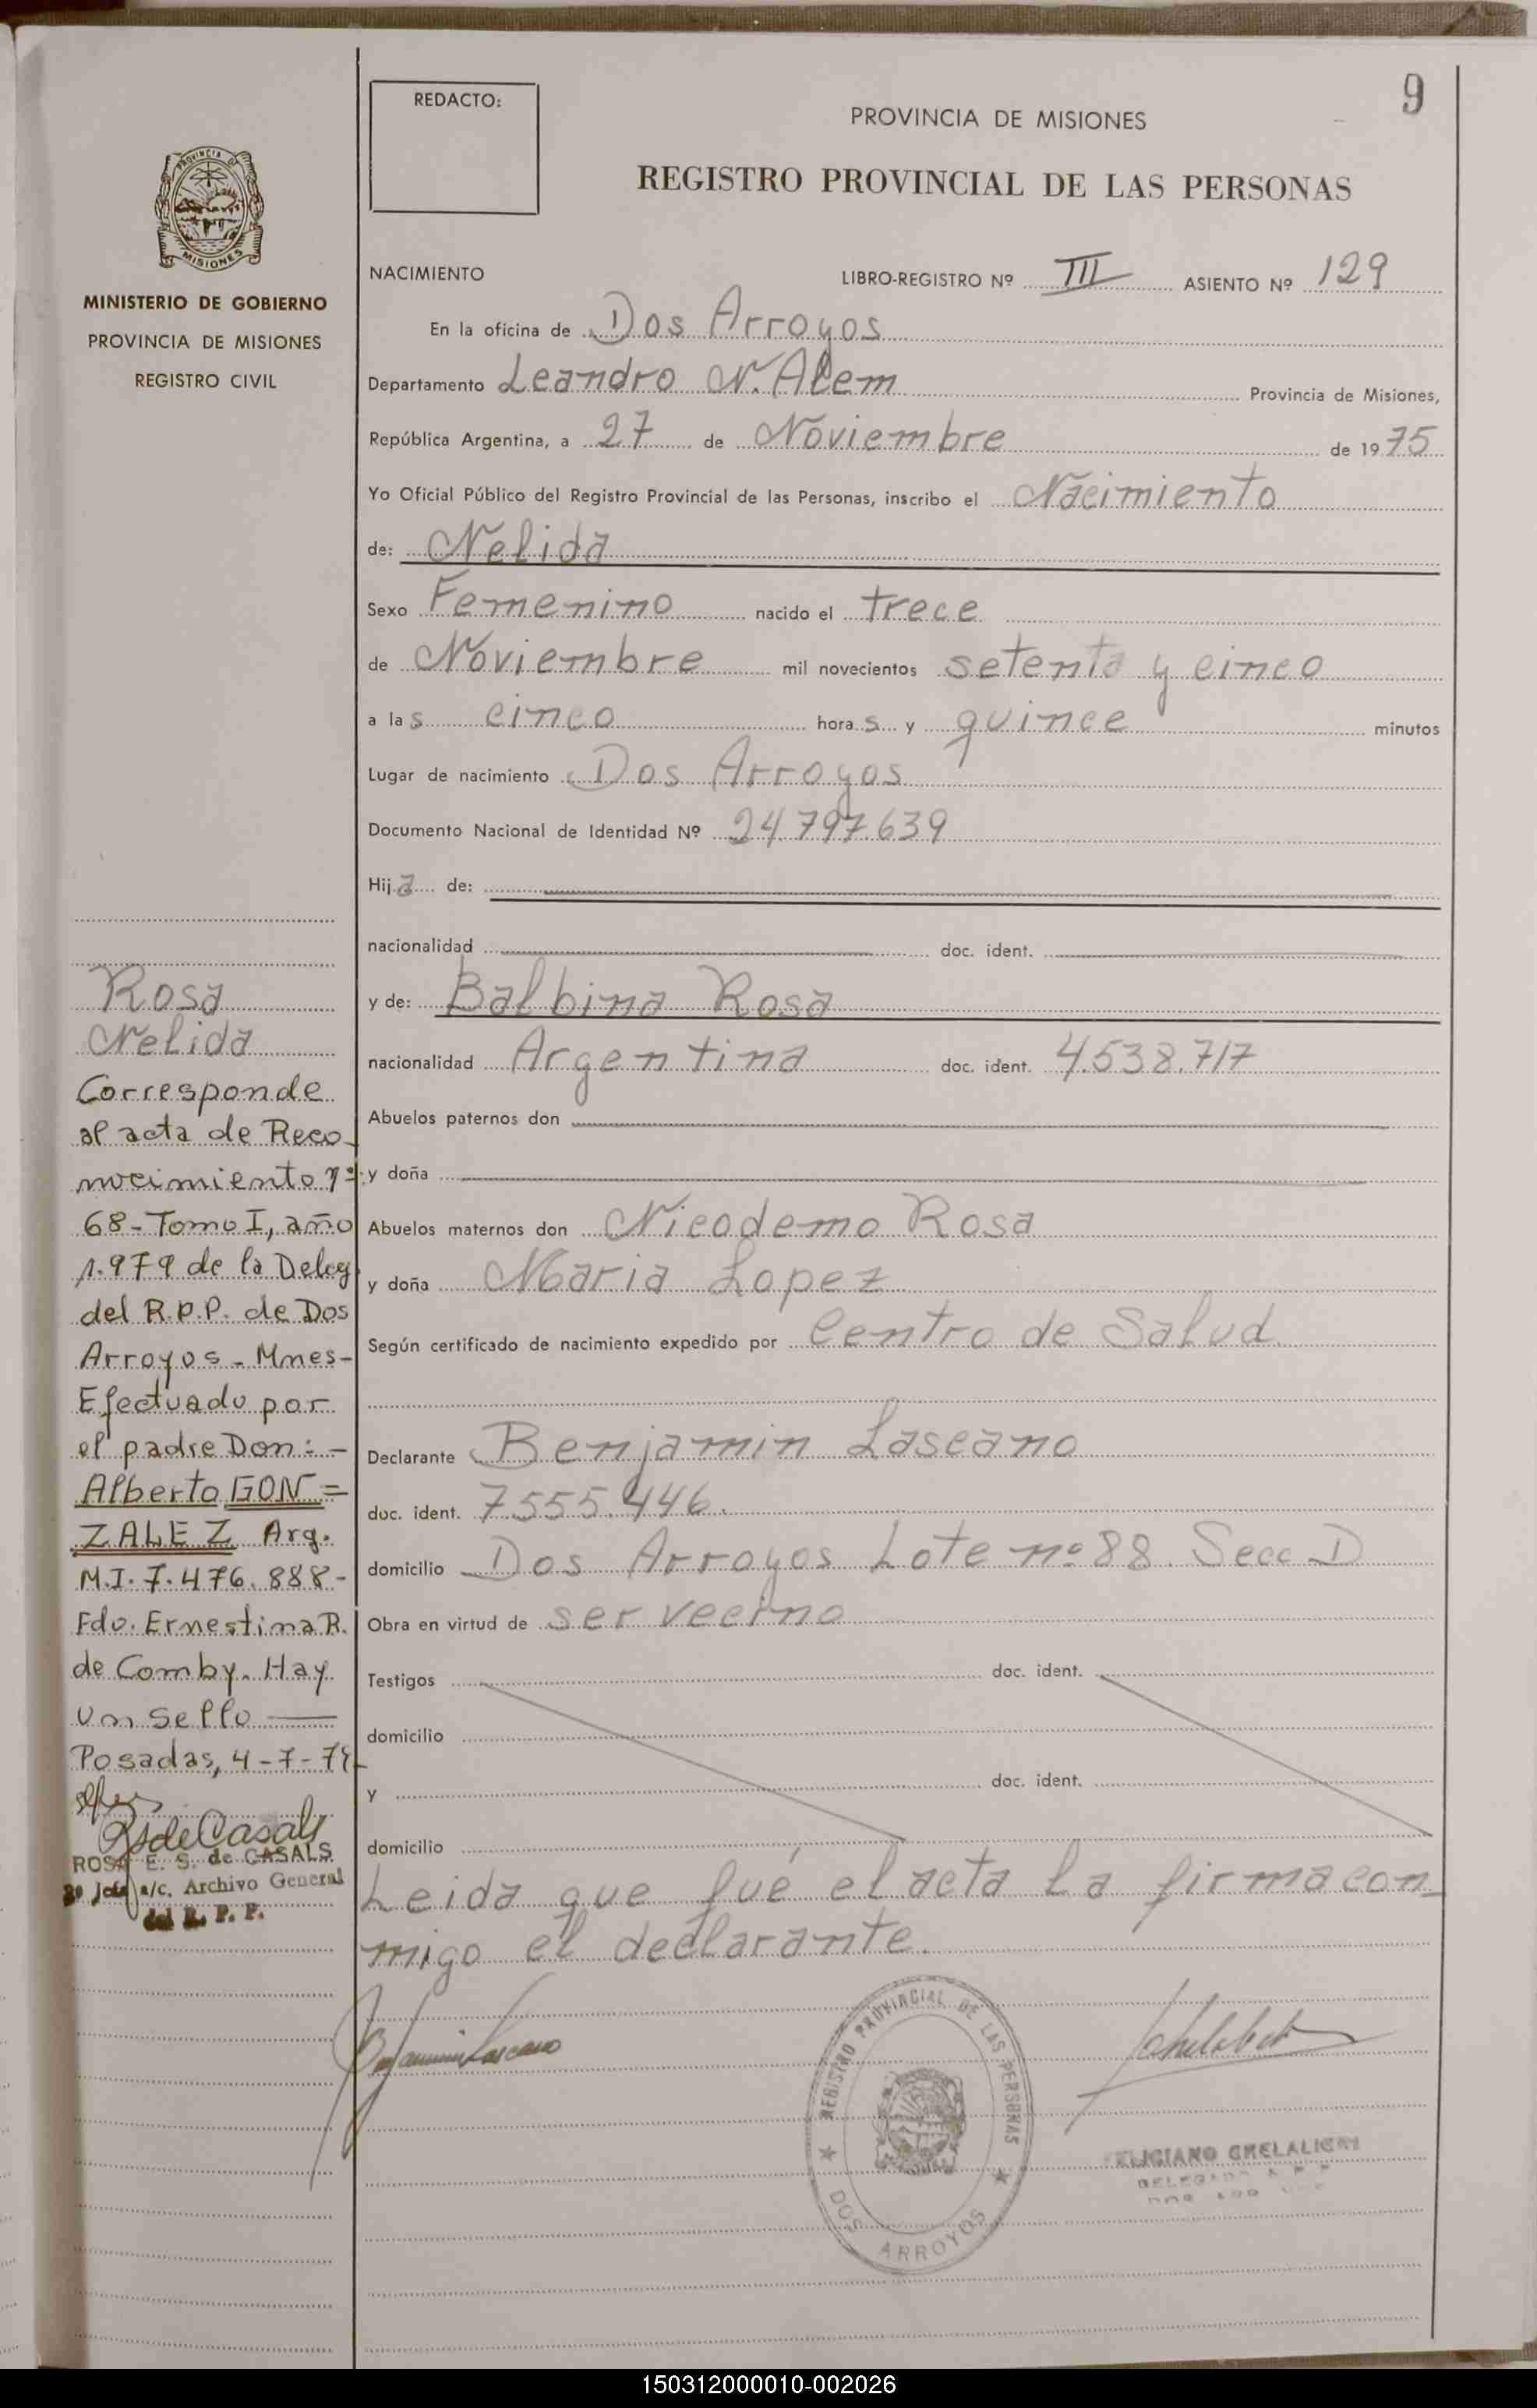 9
REDACTO:
PROVINCIA DE MISIONES
REGISTRO PROVINCIAL DE LAS PERSONAS
PROVINCIA DE
MISIONES
MINISTERIO DE GOBIERNO
PROVINCIA DE MISIONES
REGISTRO CIVIL
NACIMIENTO LIBRO-REGISTRO Nº III ASIENTO Nº 129
En la oficina de Dos Arroyos
Departamento Leandro N. Alem Provincia de Misiones,
República Argentina, a 27 de Noviembre de 1975
Yo Oficial Público del Registro Provincial de las Personas, inscribo el Nacimiento
de: Nelida
Sexo Femenino nacido el trece
de Noviembre mil novecientos setenta y cinco
a las cinco horas y quince minutos
Lugar de nacimiento Dos Arroyos
Documento Nacional de Identidad Nº 24.797.639
Hija de:
nacionalidad doc. ident.
y de: Balbina Rosa
nacionalidad Argentina doc. ident. 4.538.717
Abuelos paternos don
y doña
Abuelos maternos don Nicodemo Rosa
y doña Maria Lopez
Según certificado de nacimiento expedido por Centro de Salud
Declarante Benjamin Lascano
doc. ident. 7555.446.
domicilio Dos Arroyos Lote nº 88. Secc D
Obra en virtud de ser vecino
Testigos doc. ident.
domicilio
y doc. ident.
domicilio
Leida que fué el acta la firma con-
migo el declarante.
Benjamin Lascano
REGISTRO PROVINCIAL DE LAS PERSONAS
DOS ARROYOS
Rosa
Nelida
Corresponde
al acta de Reco-
nocimiento nº
68-Tomo I, año
1.979 de la Deleg
del R.P.P. de Dos
Arroyos - Mnes-
Efectuado por
el padre Don: -
Alberto GON=
ZALEZ Arg.
M.I. 7.476.888-
Fdo. Ernestina R.
de Comby. Hay
un sello
Posadas, 4-7-79
ROSA E. S. de CASALS
2º Jefe a/c. Archivo General
del R. P. P.
150312000010-002026